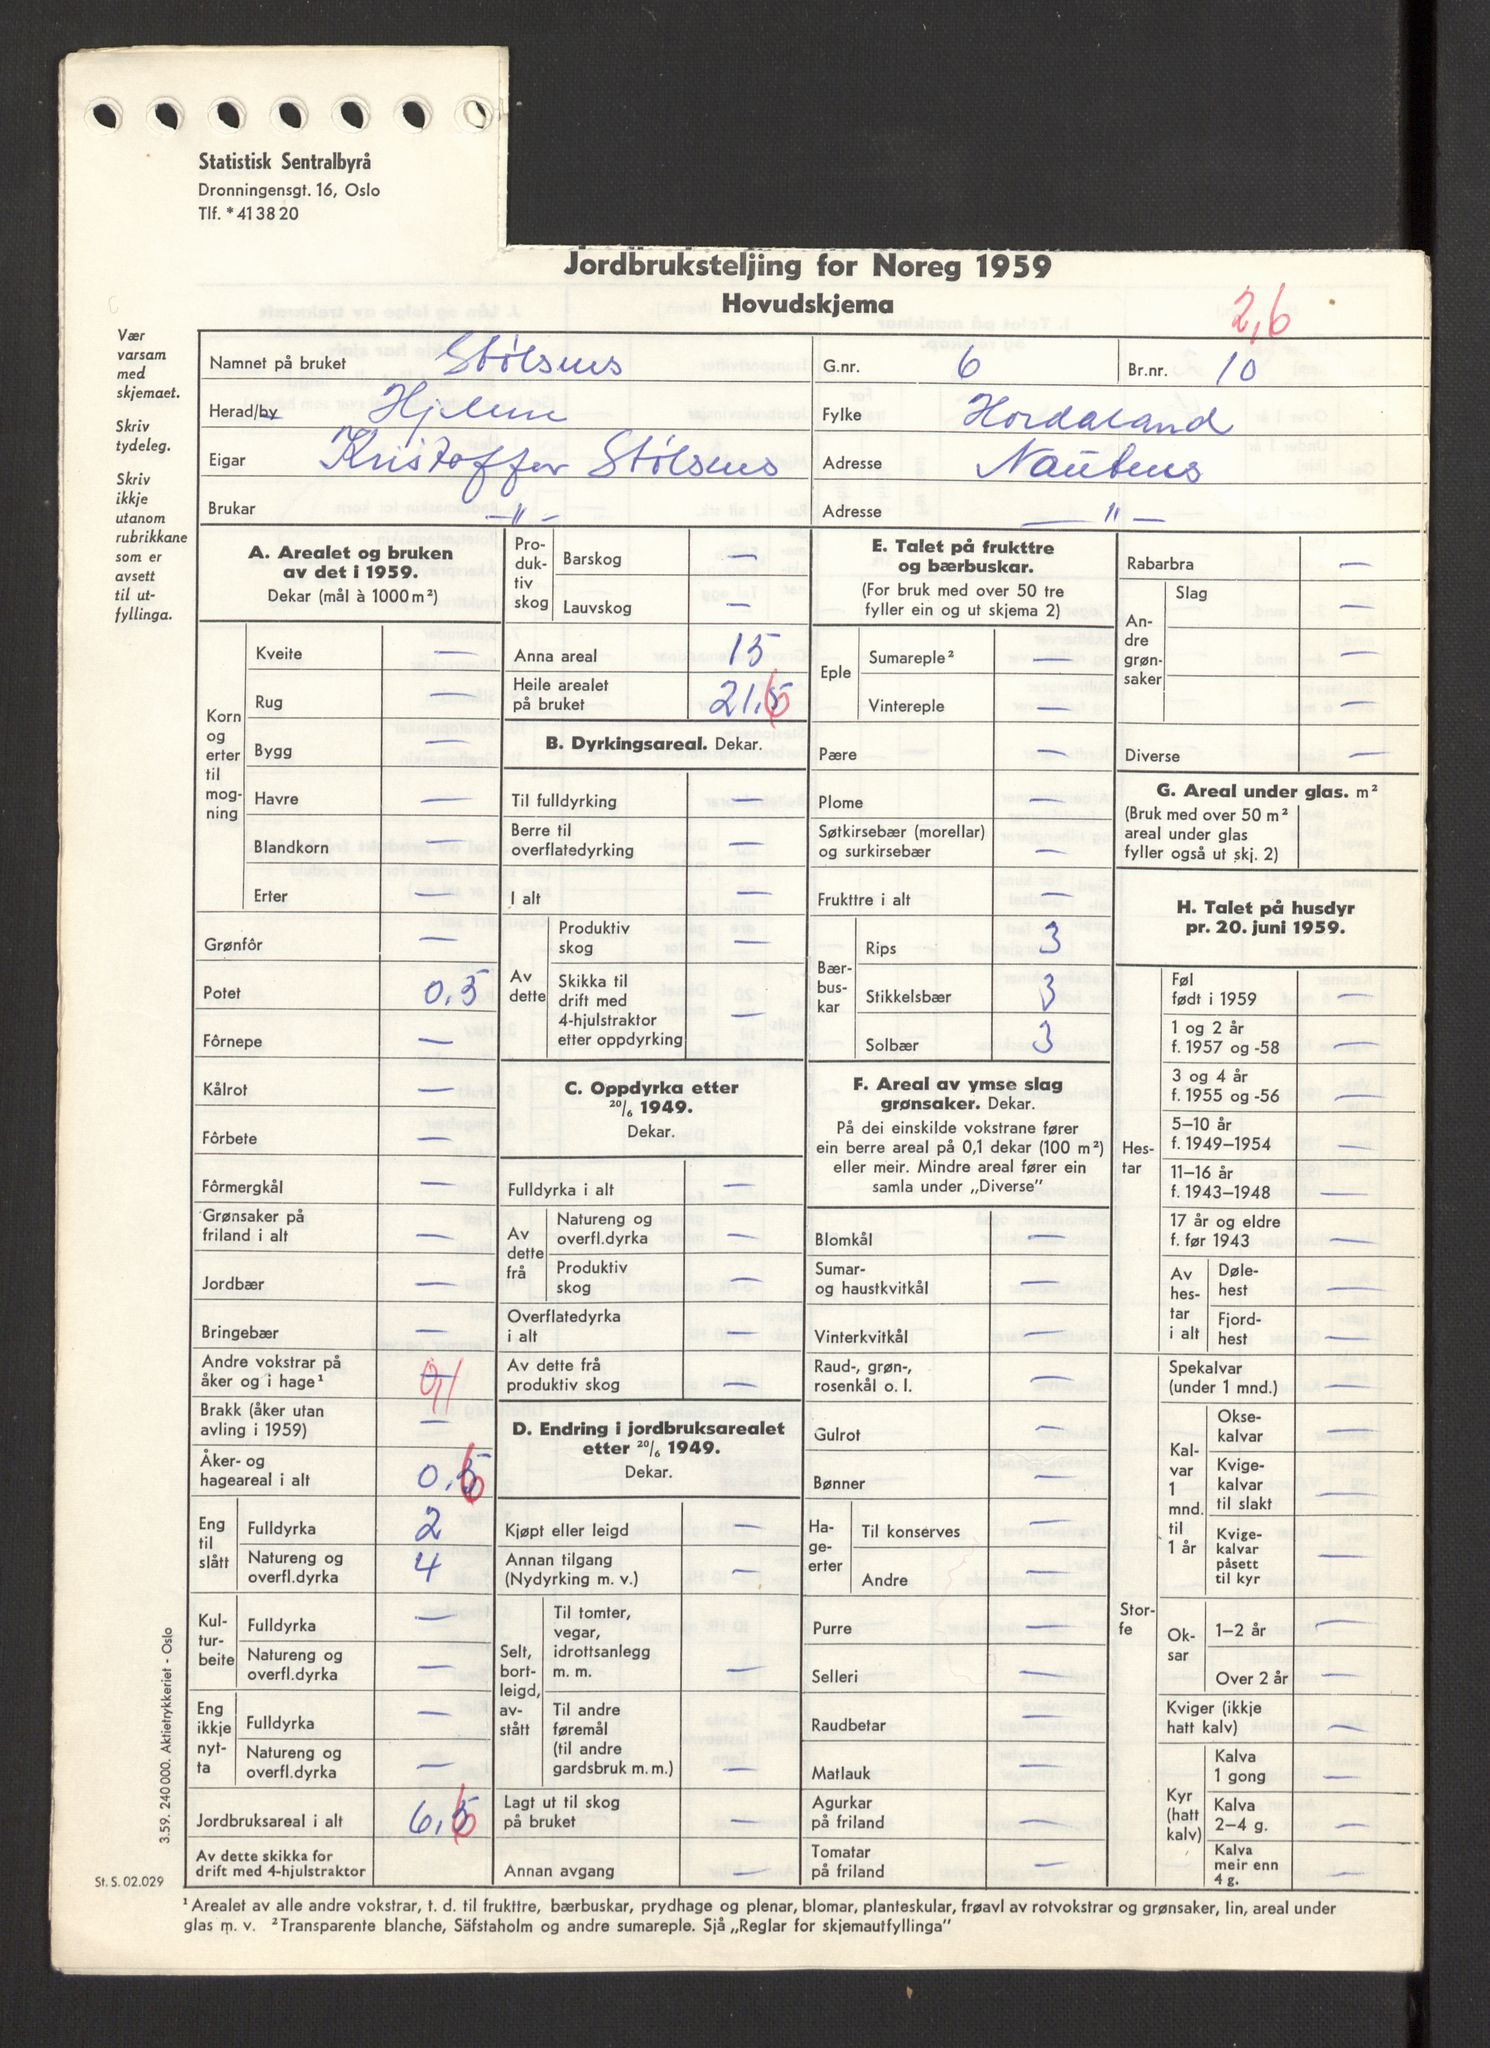 Statistisk Sentralbyrå
Dronningensgt. 16, Oslo
Tlf. *41 38 20
Jordbruksteljing for Noreg 1959
Hovudskjema
2,6
Vær
varsam
med
skjemaet.
Skriv
tydeleg.
Skriv
ikkje
utanom
rubrikkane
som er
avsett
til ut-
fyllinga.
Namnet på bruket Stølsens G.nr. 6 Br.nr. 10
Herad/by Hjelme Fylke Hordaland
Eigar Kristoffer Stølsens Adresse Nautnes
Brukar —"— Adresse —"—
A. Arealet og bruken
av det i 1959.
Dekar (mål à 1000 m²)
Korn
og
erter
til
mog-
ning
Kveite —
Rug —
Bygg —
Havre —
Blandkorn —
Erter —
Grønfôr —
Potet 0,5
Fôrnepe —
Kålrot —
Fôrbete —
Fôrmergkål —
Grønsaker på
friland i alt —
Jordbær —
Bringebær —
Andre vokstrar på
åker og i hage¹ — 0,1
Brakk (åker utan
avling i 1959) —
Åker- og
hageareal i alt 0,5 6
Eng
til
slått
Fulldyrka 2
Natureng og
overfl.dyrka 4
Kul-
tur-
beite
Fulldyrka —
Natureng og
overfl.dyrka —
Eng
ikkje
nyt-
ta
Fulldyrka —
Natureng og
overfl.dyrka —
Jordbruksareal i alt 6,5 6
Av dette skikka for
drift med 4-hjulstraktor
Pro-
duk-
tiv
skog
Barskog —
Lauvskog —
Anna areal 15
Heile arealet
på bruket 21,5 6
B. Dyrkingsareal. Dekar.
Til fulldyrking —
Berre til
overflatedyrking —
I alt —
Av
dette
Produktiv
skog —
Skikka til
drift med
4-hjulstraktor
etter oppdyrking —
C. Oppdyrka etter
20/6 1949.
Dekar.
Fulldyrka i alt —
Av
dette
frå
Natureng og
overfl.dyrka —
Produktiv
skog —
Overflatedyrka
i alt —
Av dette frå
produktiv skog —
D. Endring i jordbruksarealet
etter 20/6 1949.
Dekar.
Kjøpt eller leigd —
Annan tilgang
(Nydyrking m. v.) —
Selt,
bort-
leigd,
av-
stått
Til tomter,
vegar,
idrottsanlegg
m. m. —
Til andre
føremål
(til andre
gardsbruk m. m.) —
Lagt ut til skog
på bruket —
Annan avgang —
E. Talet på frukttre
og bærbuskar.
(For bruk med over 50 tre
fyller ein og ut skjema 2)
Eple
Sumareple² —
Vintereple —
Pære —
Plome —
Søtkirsebær (morellar)
og surkirsebær —
Frukttre i alt —
Bær-
bus-
kar
Rips 3
Stikkelsbær 3
Solbær 3
F. Areal av ymse slag
grønsaker. Dekar.
På dei einskilde vokstrane fører
ein berre areal på 0,1 dekar (100 m²)
eller meir. Mindre areal fører ein
samla under „Diverse”
Blomkål —
Sumar-
og haustkvitkål —
Vinterkvitkål —
Raud-, grøn-,
rosenkål o. l. —
Gulrot —
Bønner —
Ha-
ge-
erter
Til konserves —
Andre —
Purre —
Selleri —
Raudbetar —
Matlauk —
Agurkar
på friland —
Tomatar
på friland —
Rabarbra —
An-
dre
grøn-
saker
Slag
—
—
—
Diverse —
G. Areal under glas. m²
(Bruk med over 50 m²
areal under glas
fyller også ut skj. 2) —
H. Talet på husdyr
pr. 20. juni 1959.
Hes-
tar
Føl
født i 1959 —
1 og 2 år
f. 1957 og -58 —
3 og 4 år
f. 1955 og -56 —
5–10 år
f. 1949–1954 —
11–16 år
f. 1943–1948 —
17 år og eldre
f. før 1943 —
Av
hes-
tar
i alt
Døle-
hest —
Fjord-
hest —
Stor-
fe
Spekalvar
(under 1 mnd.) —
Kal-
var
1
mnd.
til
1 år
Okse-
kalvar —
Kvige-
kalvar
til slakt —
Kvige-
kalvar
påsett
til kyr —
Ok-
sar
1–2 år —
Over 2 år —
Kviger (ikkje
hatt kalv) —
Kyr
(hatt
kalv)
Kalva
1 gong —
Kalva
2–4 g. —
Kalva
meir enn
4 g. —
3.59. 240 000. Aktietrykkeriet - Oslo
St. S. 02.029
¹ Arealet av alle andre vokstrar, t. d. til frukttre, bærbuskar, prydhage og plenar, blomar, planteskular, frøavl av rotvokstrar og grønsaker, lin, areal under
glas m. v. ² Transparente blanche, Säfstaholm og andre sumareple. Sjå „Reglar for skjemautfyllinga”